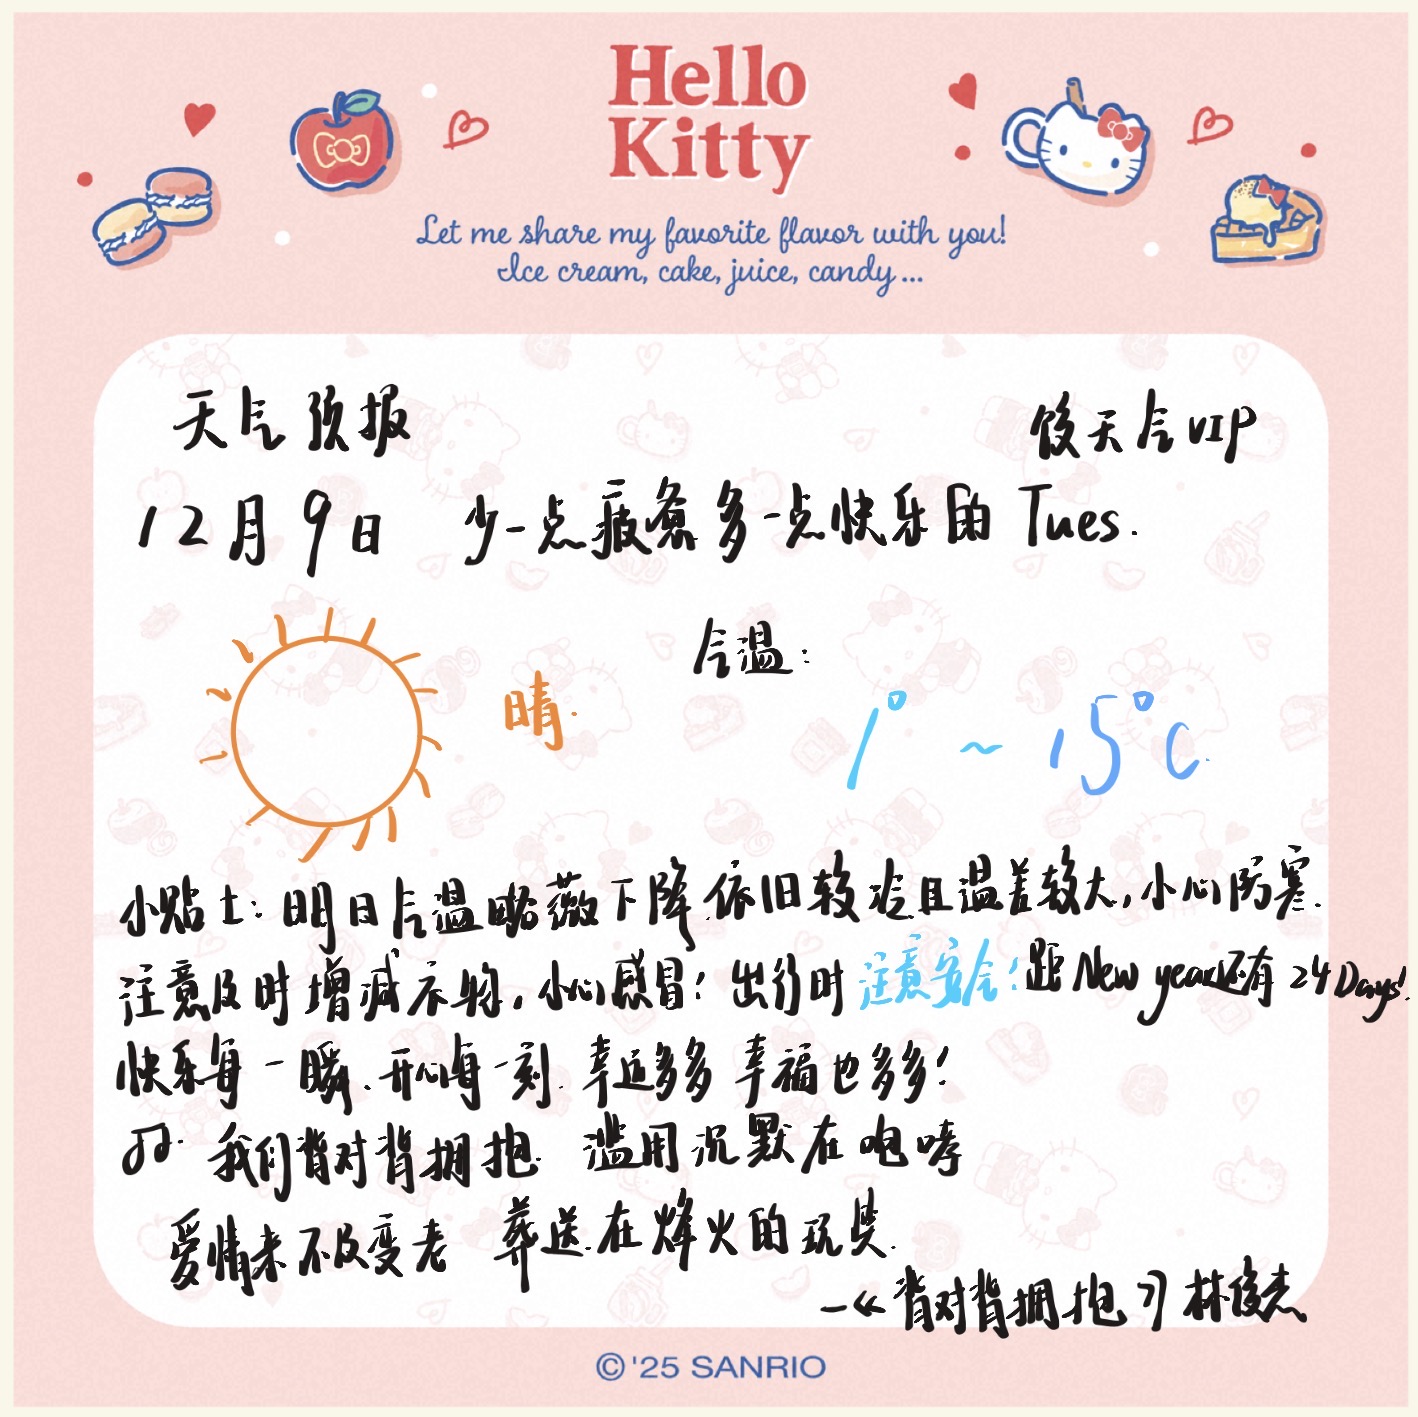 Hello
Kitty
Let me share my favorite flavor with you!
Ice cream, cake, juice, candy...
天气预报 饺天气VIP
12月9日 少一点疲惫多一点快乐的 Tues.
气温:
晴.
1° ~ 15°C.
小贴士: 明日气温略薇下降.依旧较冷且温差较大,小心防寒.
注意及时增减衣物,小心感冒! 出行时注意安全!距New year还有24Days!
快乐每一瞬.开心每一刻.幸运多多 幸福也多多!
我们背对背拥抱 滥用沉默在咆哮
爱情来不及变老 葬送在烽火的玩具.
—《背对背拥抱》林俊杰
©'25 SANRIO